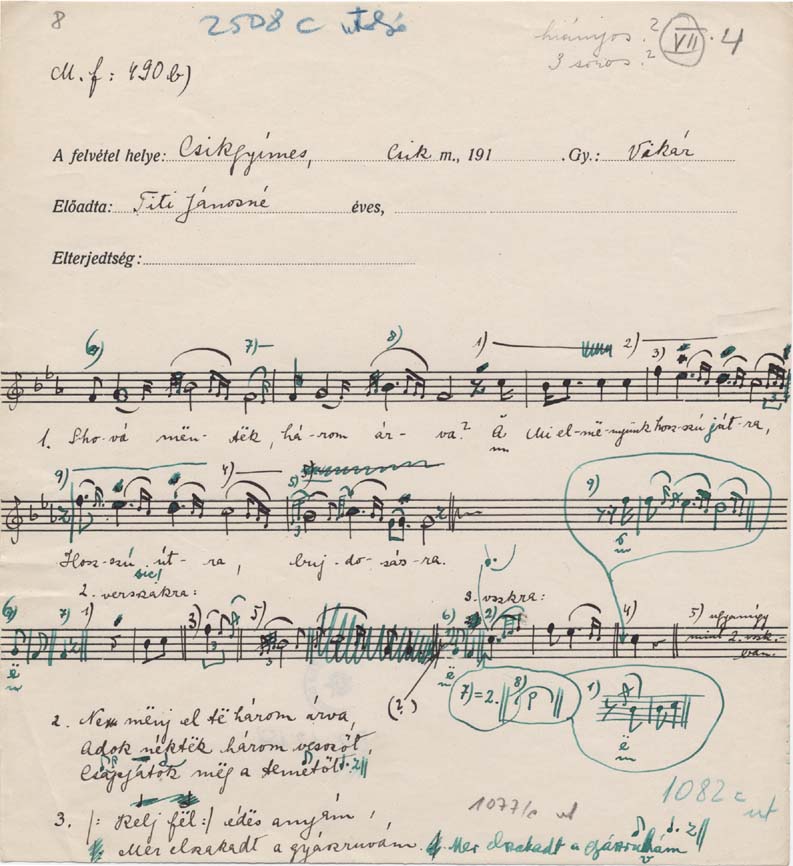 8 2508 c utolsó hiányos? VII. 4
3 soros?
M. f: 490 b)
A felvétel helye: Csikgyimes, Csik m., 191 .Gy.: Vikár
Előadta: Titi Jánosné éves,
Elterjedtség:
6) 7) 8) 1) 2) 3)
1. Sho-vá mën-tëk, há-rom ár-va? Ă Mi el-më-nyünk hosz-szú jút-ra,
9) 4) 5) 9)
Hosz-szú út-ra, buj-do-sás-ra.
sic!
2. versszakra: 3. vszkra:
6) 7) 1) 3) 5) 6) 2) 4) 5) ugyanúgy
mint 2. vszk.-
ban.
ë ë
(?) 7)=2. 8) 1)
ë
2. Ne mënj el të három árva,
Adok néktëk három vesszőt,
Csapjátok mëg a temetőt
1077/c ut 1082 c ut
3. /: Kelj fël :/ édës anyám,
Mer elszakadt a gyászruvám. Mer elszakadt a gyászruhám
v